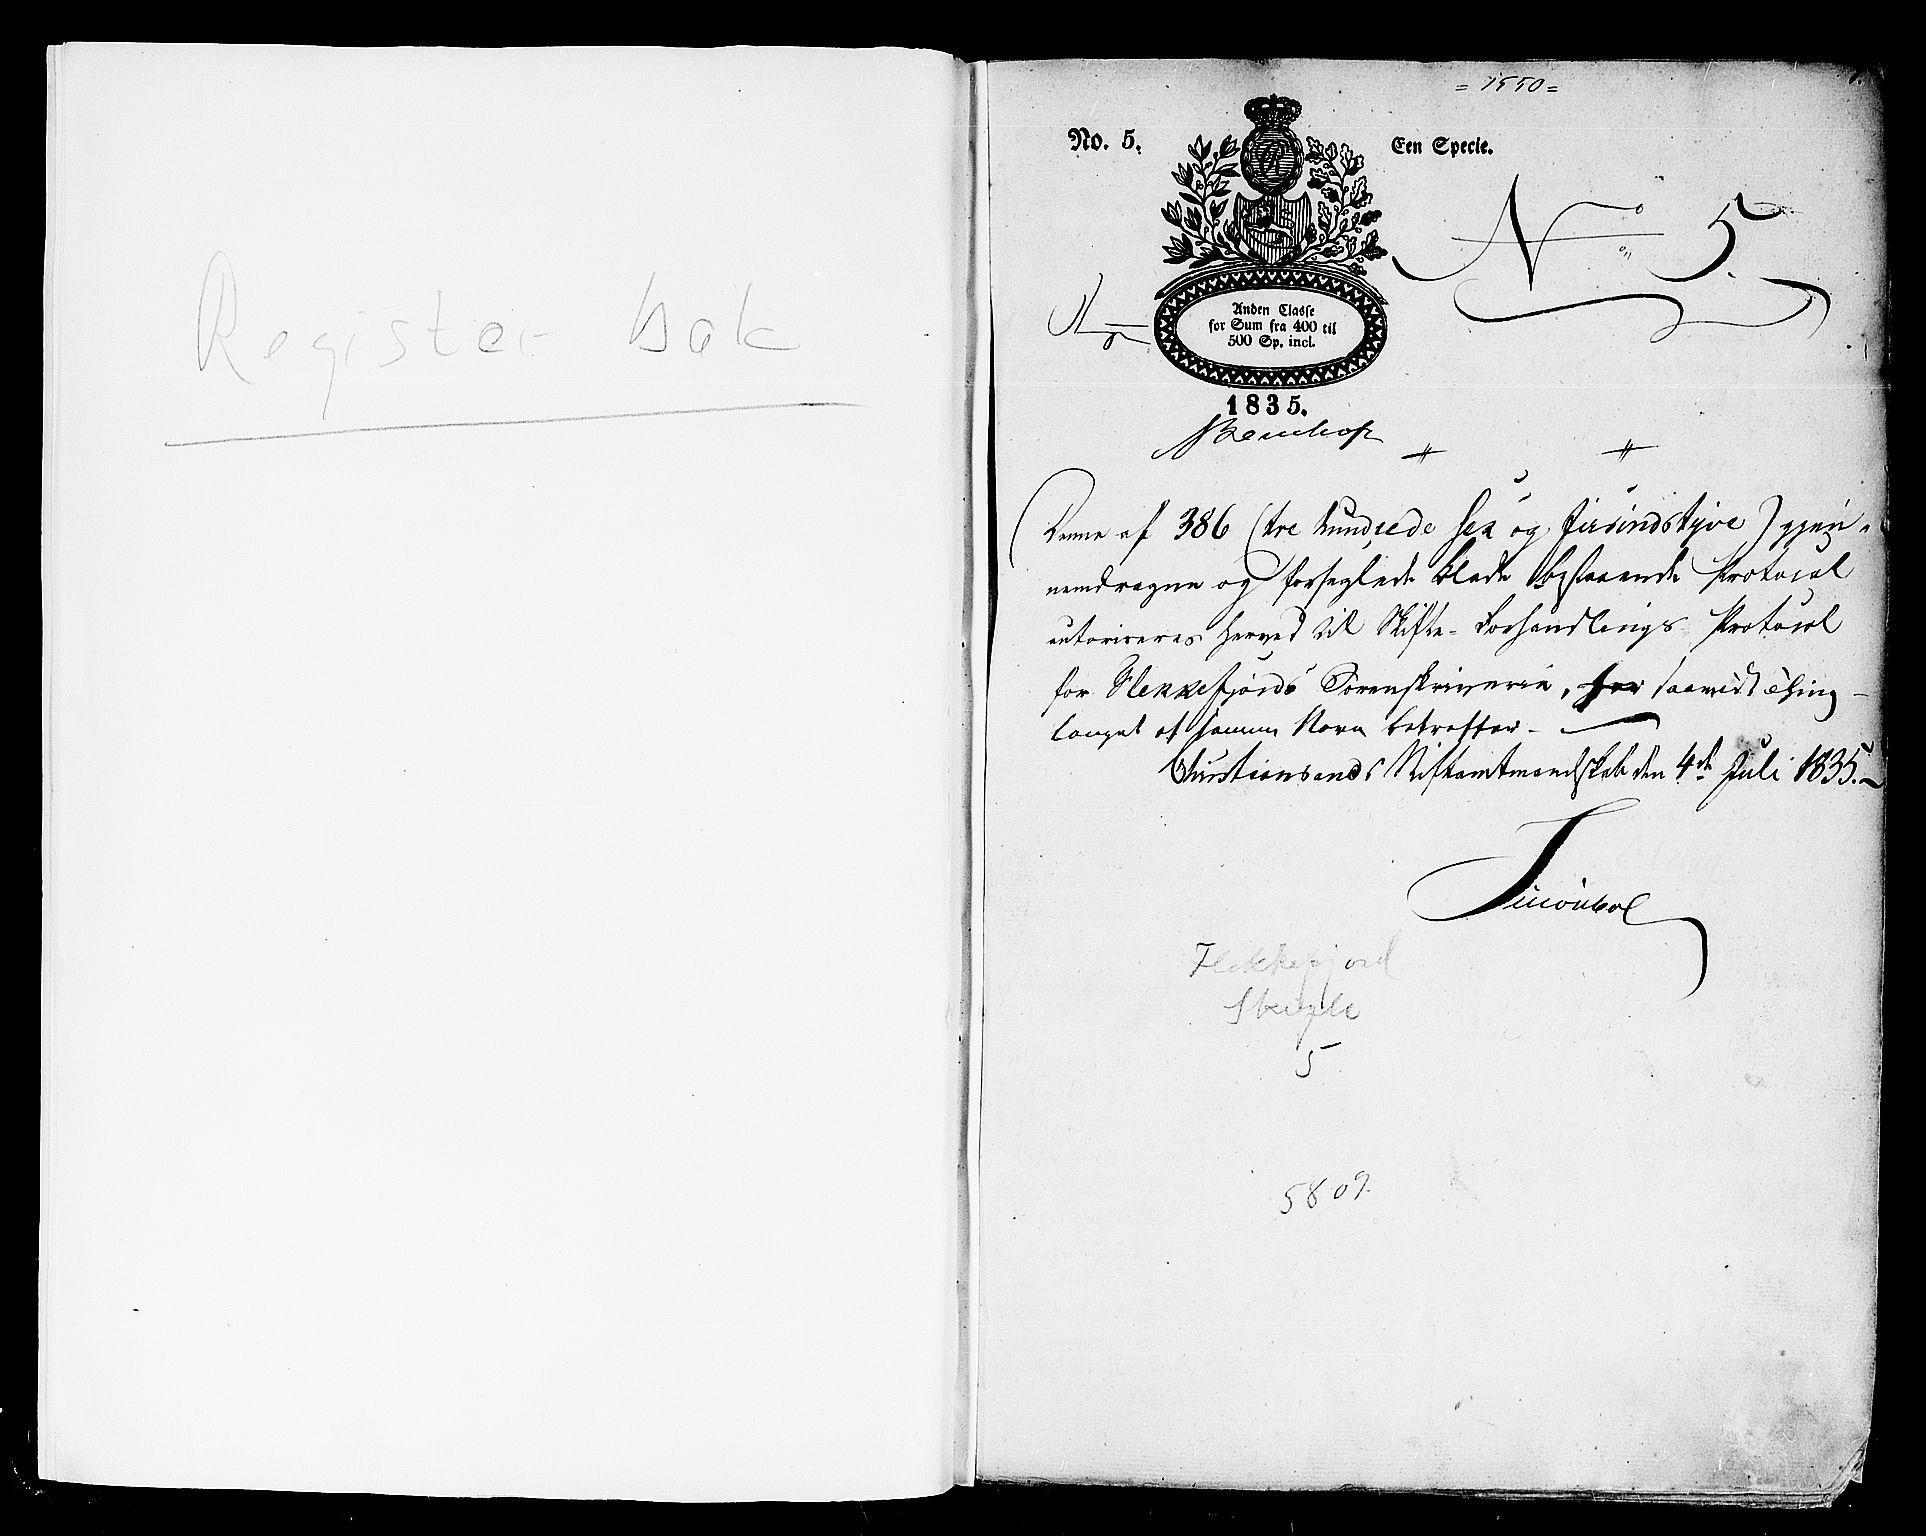 Register bak
= 1550 =
No. 5.
Een Specie.
No 5.
Anden Classe
for Sum fra 400 til
500 Sp. incl.
1835.
Denne af 386 (tre hundrede sex og firsindstyve) gjen-
nemdragne og forseglede Blade bestaaende Protocol
autoriseres herved til Skifte-Forhandlings Protocol
for Flekkefjords Sorenskriverie, for saavidt Thing-
lauget af samme Navn betræffer.
Christiansands Stiftamtmandskab den 4de Juli 1835.
Flekkefjord
Skifte
5
5809.